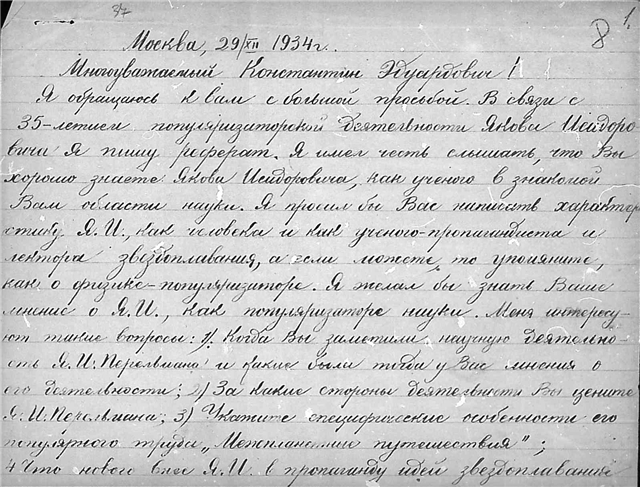 37
1.
8
Москва, 29/XII 1934 г..
Многоуважаемый Константин Эдуардович!
Я обращаюсь к Вам с большой просьбой. В связи с
35-летием популяризаторской деятельности Якова Исидоро
вича я пишу реферат. Я имел честь слышать, что Вы
хорошо знаете Якова Исидоровича, как ученого в знакомой
Вам области науки. Я просил бы Вас написать характери
стику Я.И., как человека и как ученого-пропагандиста и
лектора звездоплавания, а если можете, то упомяните,
как о физике-популяризаторе. Я желал бы знать Ваше
мнение о Я.И., как популяризаторе науки. Меня интересу-
ют такие вопросы: 1). Когда Вы заметили научную деятельно-
сть Я.И. Перельмана и какие были тогда у Вас мнения о
его деятельности; 2) За какие стороны деятельности Вы цените
Я.И. Перельмана; 3) Укажите специфические особенности его
популярного труда „Межпланетные путешествия";
4 Что нового внес Я.И. в пропаганду идей звездоплавания